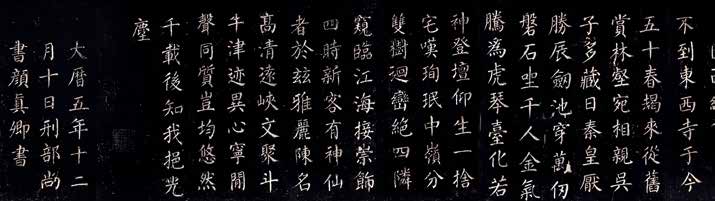 不到東西寺于今
五十春朅來從舊
賞林壑宛相親吳
子多藏日秦皇厭
勝辰劒池穿萬仞
磐石坐千人金氣
騰為虎琴臺化若
神登壇仰生一捨
宅嘆珣珉中嶺分
雙樹迴巒絕四隣
窺臨江海接崇飾
四時新客有神仙
者於玆雅麗陳名
高清遠峽文聚斗
牛津迹異心寧閒
聲同質豈均悠然
千載後知我挹光
塵
大曆五年十二
月十日刑部尚
書顏真卿書